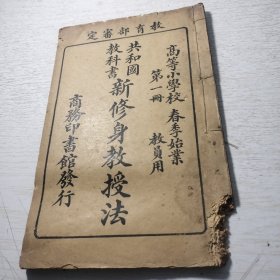 教育部審定
高等小學校 春季始業
第一冊 教員用
共和國
教科書
新修身教授法
商務印書館發行